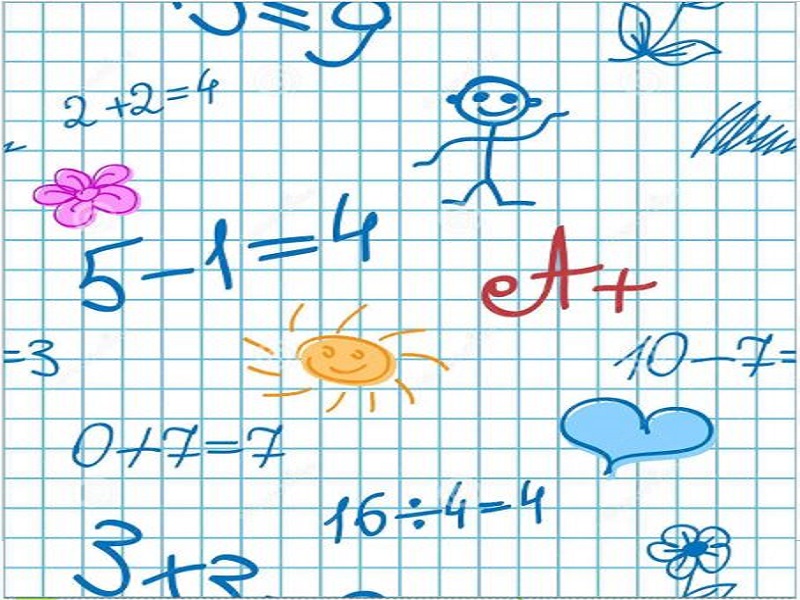 =9
2+2=4
5-1=4
A+
=3
10-7=
0+7=7
16÷4=4
3+3